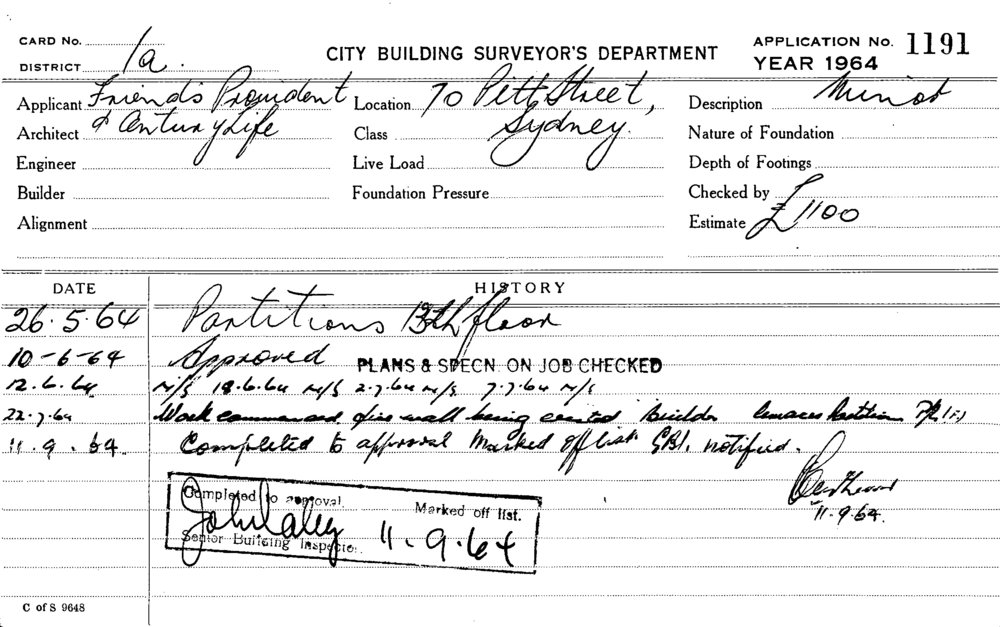 CARD No.
DISTRICT 1a.
CITY BUILDING SURVEYOR'S DEPARTMENT
APPLICATION No. 1191
YEAR 1964
Applicant Friends Provident
Location 70 Pitt Street,
Description Minor
Architect & Century Life
Class Sydney.
Nature of Foundation
Engineer
Live Load
Depth of Footings
Builder
Foundation Pressure
Checked by
Alignment
Estimate £1100
DATE HISTORY
26.5.64 Partitions 13th floor
10-6-64 Approved PLANS & SPECN. ON JOB CHECKED
12.6.64 N/S 18.6.64 N/S 2.7.64 N/S 7.7.64 N/S
22.7.64 Work commenced fire wall being erected Builder
11.9.64. Completed to approval Marked off list. notified.
11.9.64.
Completed to approval. Marked off list.
John Daley
Senior Building Inspector. 11.9.64
C of S 9648